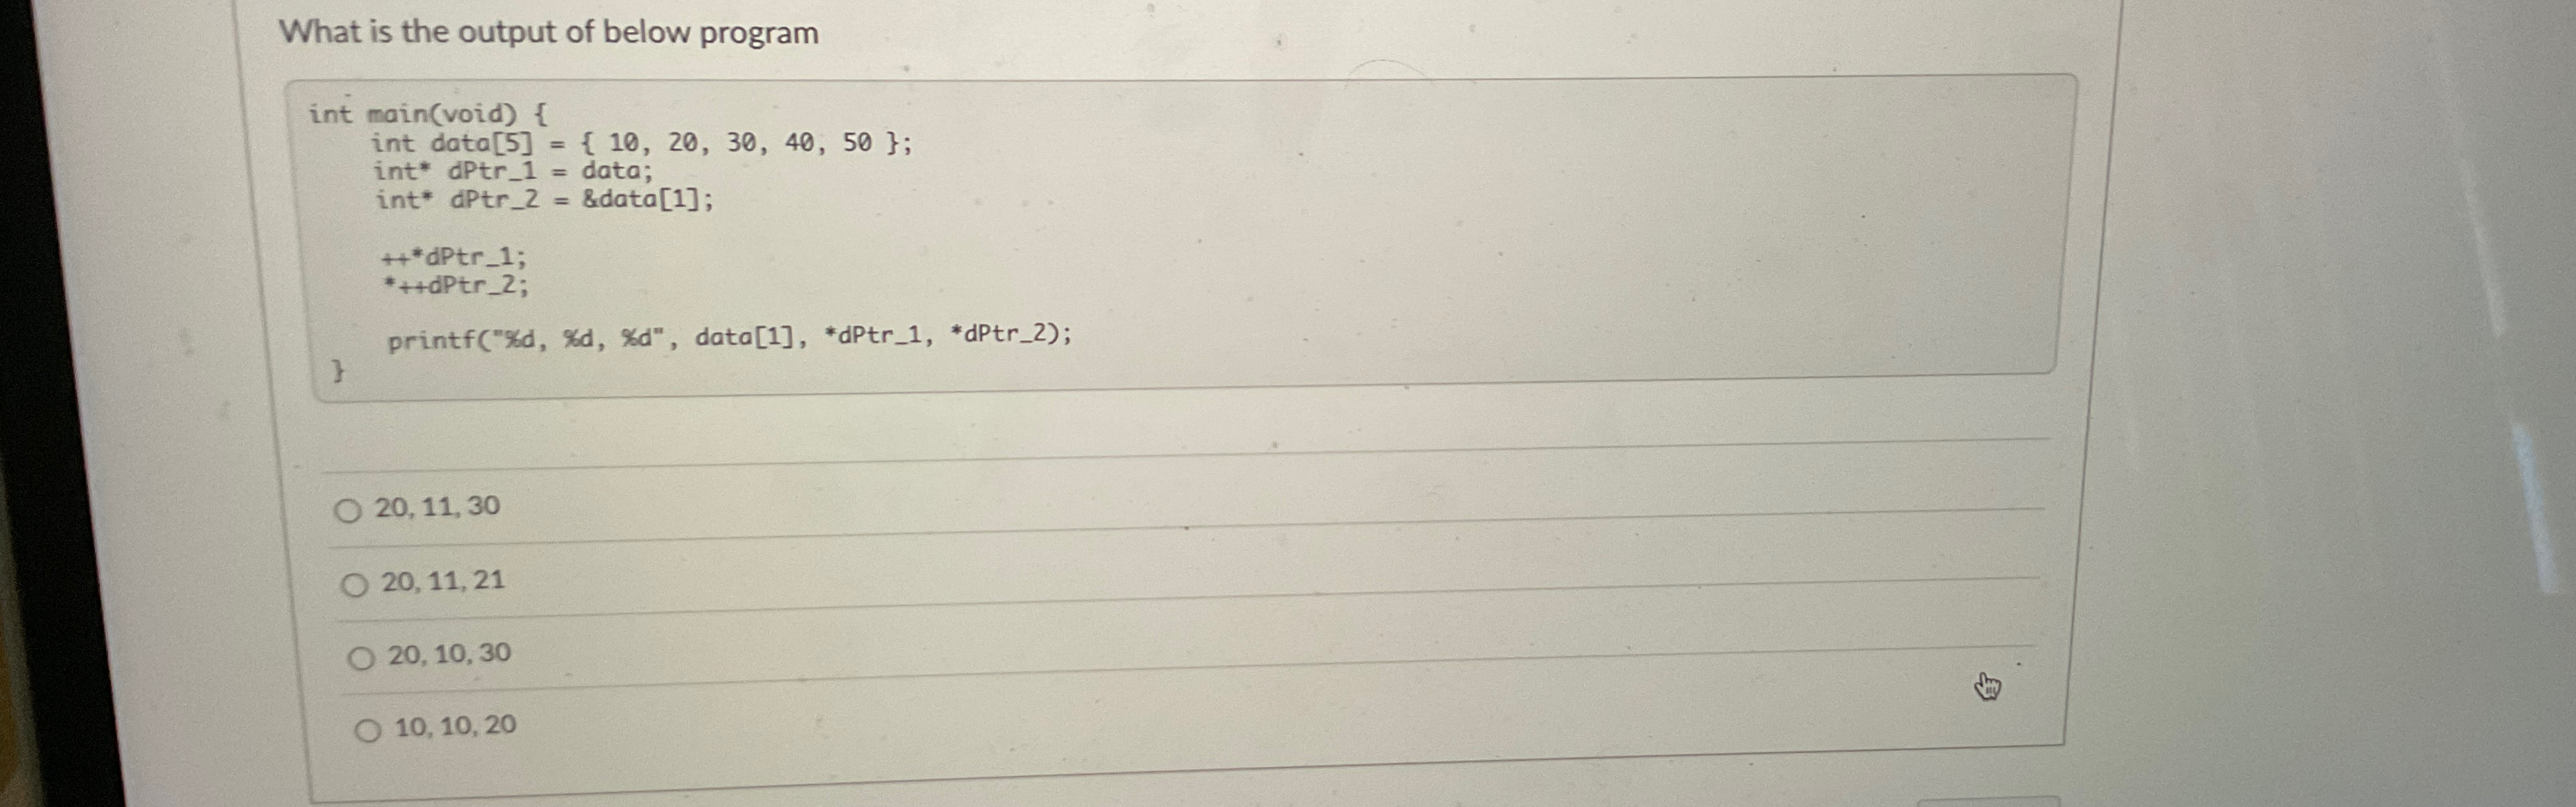 What is the output of below program
int main(void) {
int data[5] = { 10, 20, 30, 40, 50 };
int* dPtr_1 = data;
int* dPtr_2 = &data[1];
++*dPtr_1;
*++dPtr_2;
printf("%d, %d, %d", data[1], *dPtr_1, *dPtr_2);
}
20, 11, 30
20, 11, 21
20, 10, 30
10, 10, 20